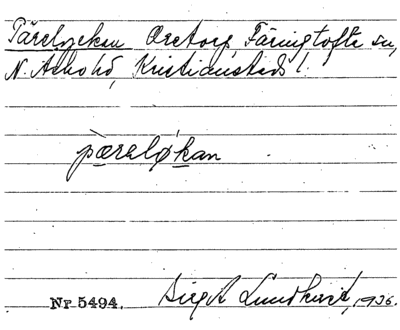 Pärelyckan Oretorp Färingtofta sn,
N. Åsbo hd, Kristianstads l.
pæreløkan
Nr 5494. Birgit Lundkvist, 1936.